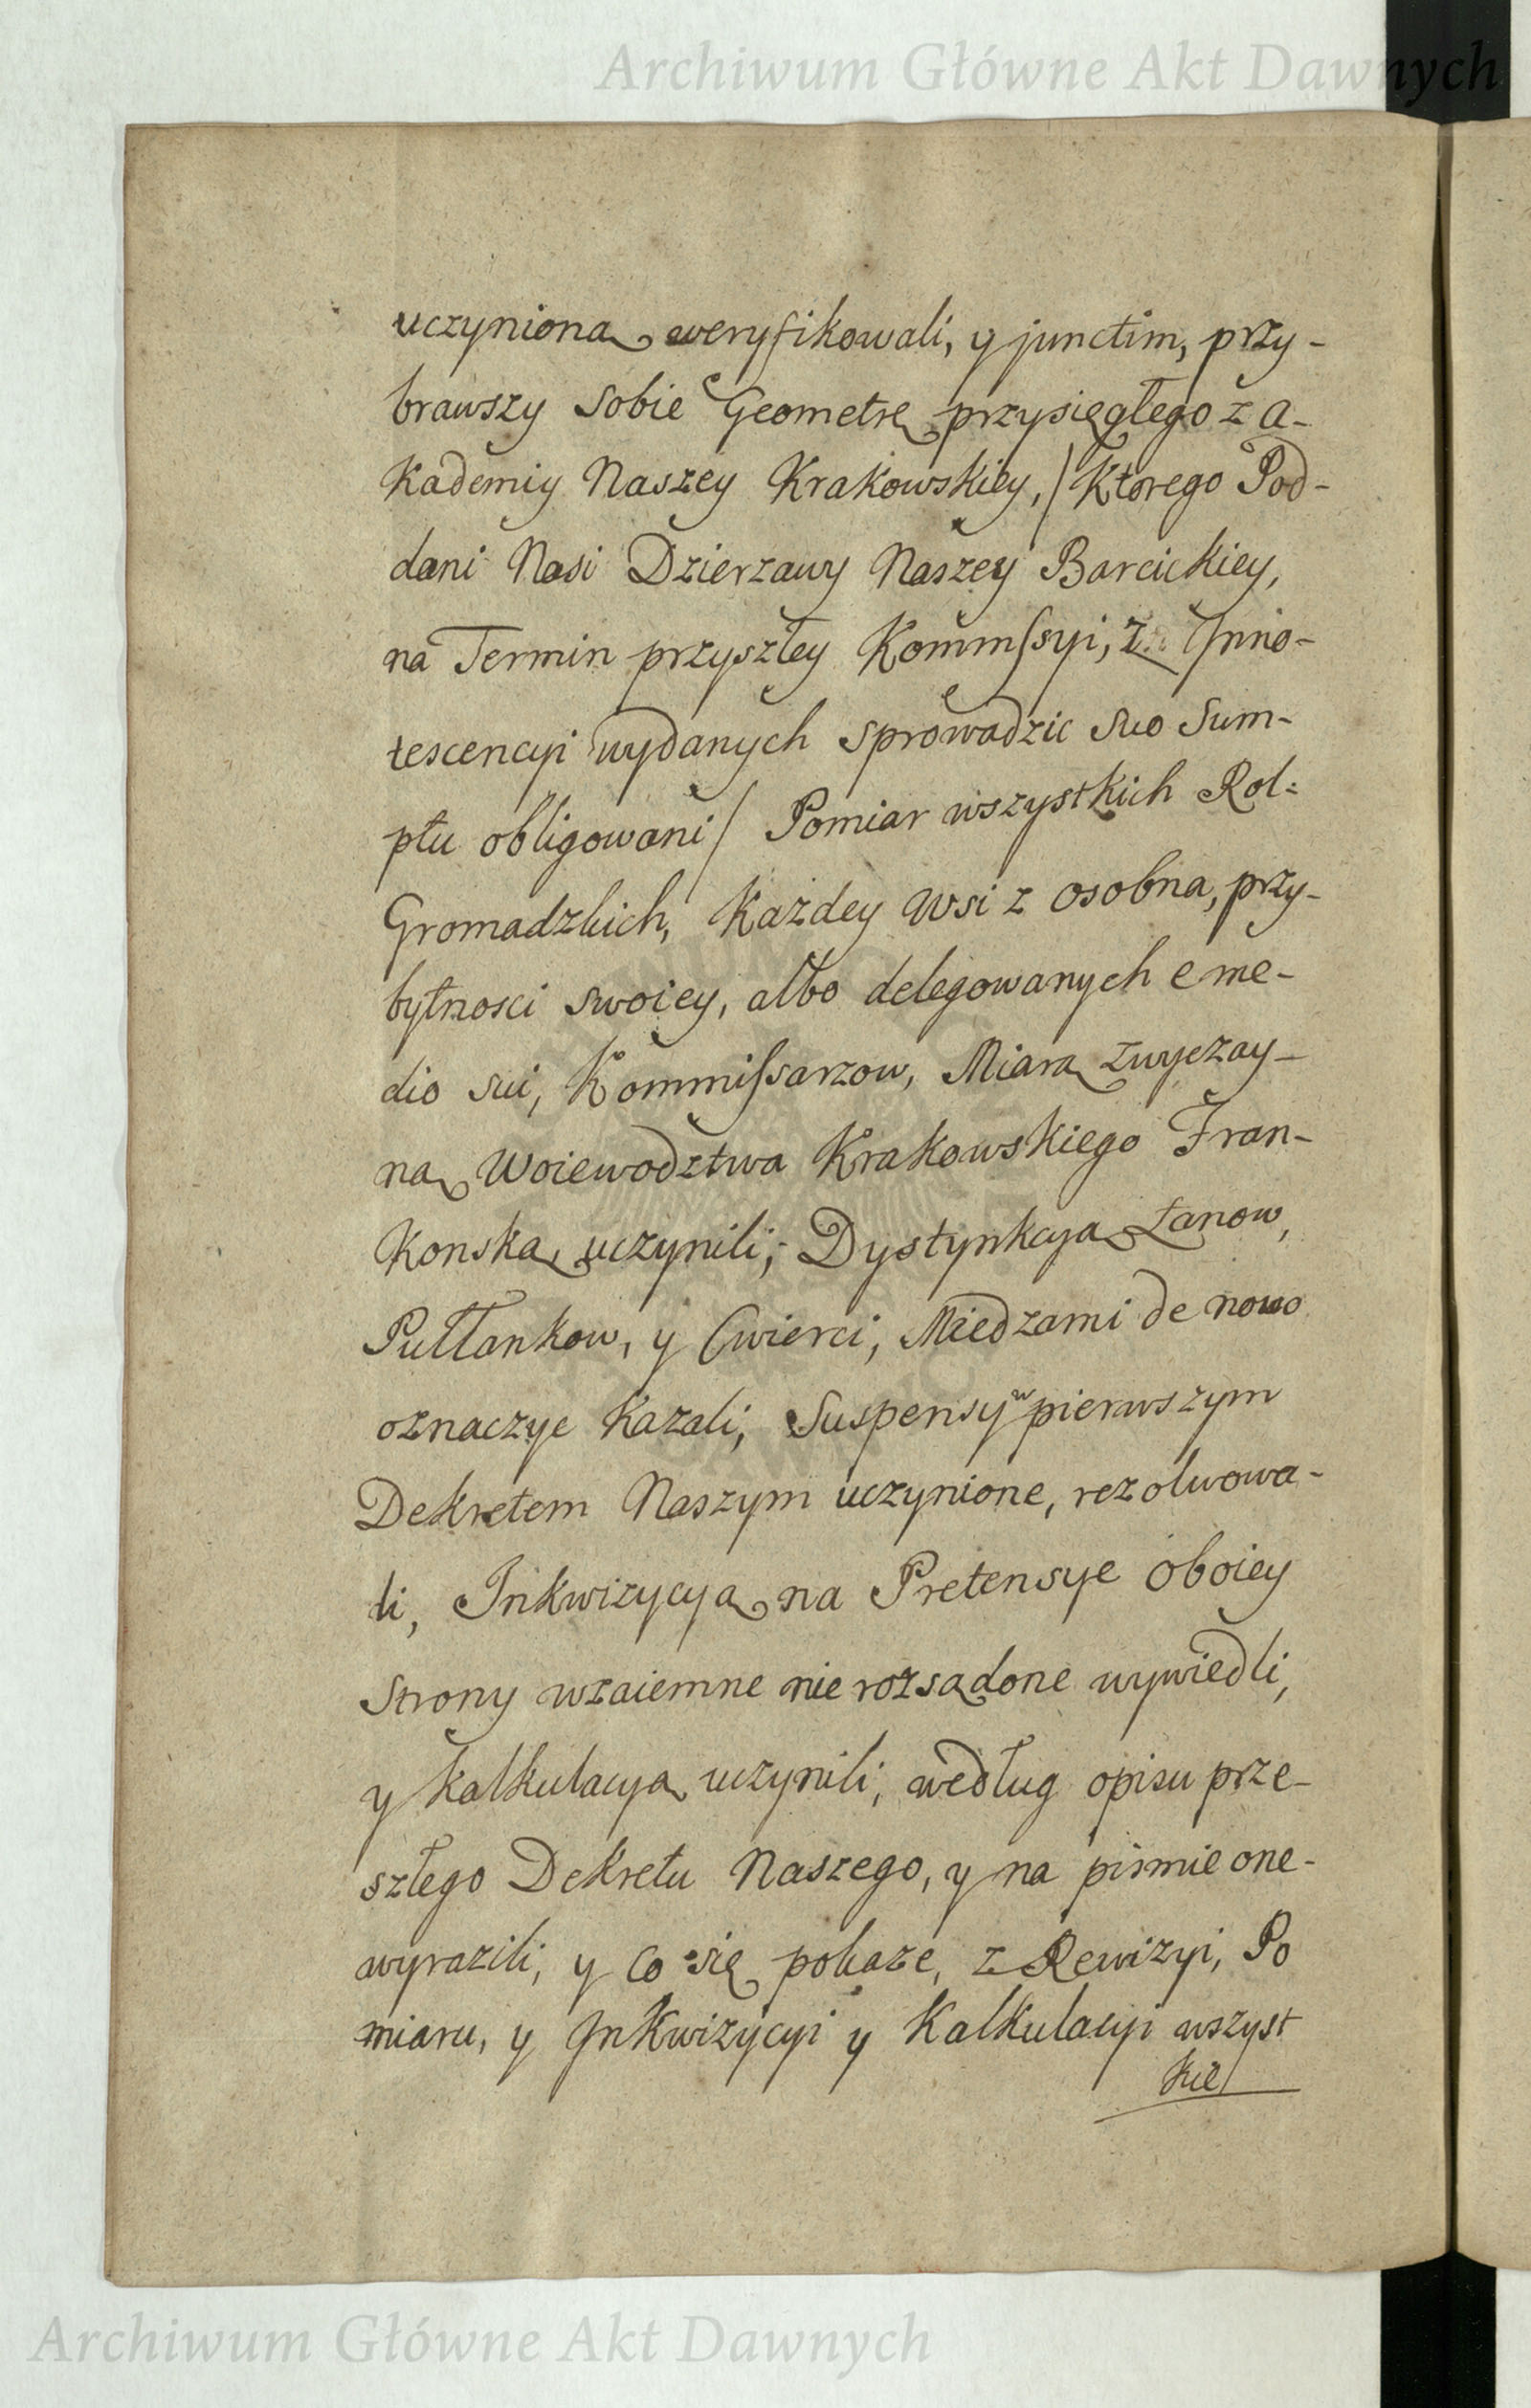 Archiwum Główne Akt Dawnych
uczynioną weryfikowali, y junctim, przy-
brawszy Sobie Geometrę przysięgłego z A-
Kademiy Naszey Krakowskiey, / Ktorego Pod-
dani Nasi Dzierzawy Naszey Barcickiey,
na Termin przyszłey Kommſsyi, Inno-
tescencyi wydanych sprowadzic suo Sum-
ptu obligowani / Pomiar wszystkich Rol:
Gromadzkich, Każdey Wsi z osobna, przy-
bytnosci swoiey, albo delegowanych e me-
dio sui, Kommiſsarzow, Miarą zwyczay-
ną Woiewodztwa Krakowskiego Fran-
Konską, uczynili; Dystynkcyą Łanow,
Pułłankow, y Cwierci, Miedzami de novo
oznaczyc Kazali; Suspensy w pierwszym
Dekretem Naszym uczynione, rezolwowa-
li, Inkwizycyą na Pretensye oboiey
Strony wzaiemne nie rozsądone wywiedli,
y kalkulacyą uczynili, według opisu prze-
szłego Dekretu Naszego, y na pismie one-
wyrazili, y co się pokaze, z Rewizyi, Po
miaru, y InKwizycyi y Kalkulacyi wszyst
kie/
Archiwum Główne Akt Dawnych